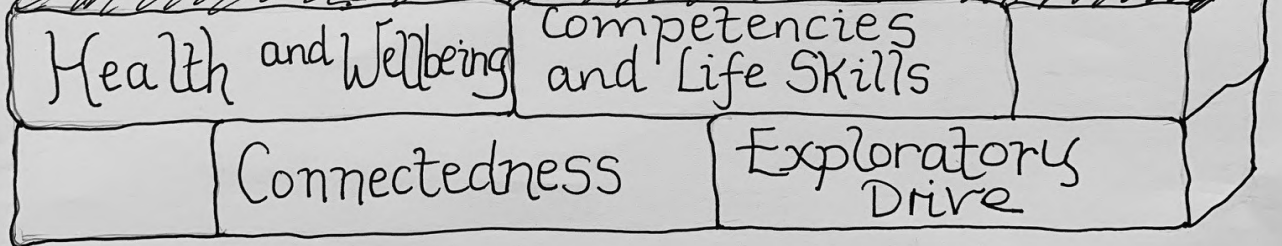 Health and Wellbeing
Competencies
and Life Skills
Connectedness
Exploratory
Drive